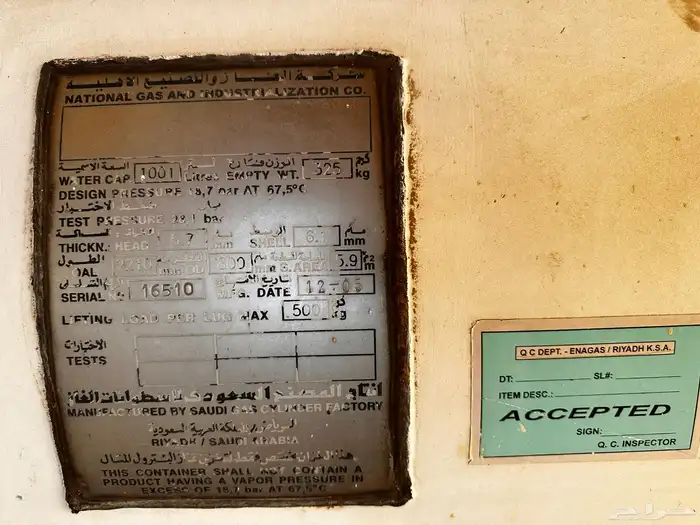 شركة الغاز والتصنيع الأهلية
NATIONAL GAS AND INDUSTRIALIZATION CO.
السعة الاسمية لتر الوزن فارغ كجم
WATER CAP 1001 Litres EMPTY WT. 325 kg
DESIGN PRESSURE 18,7 bar AT 67,5°C
ضغط الاختبار بار
TEST PRESSURE 28,1 bar
السماكة مم
THICKN: HEAD 6.7 mm SHELL mm
الطول
OD 800 mm S. AREA 5.9 m2
تاريخ
SERIAL 16510 MFG. DATE 12-05
كجم
LIFTING LOAD PER LUG MAX 500 kg
الاختبارات
TESTS
انتاج المصنع السعودي لاسطوانات الغاز
MANUFACTURED BY SAUDI GAS CYLINDER FACTORY
الرياض / المملكة العربية السعودية
RIYADH / SAUDI ARABIA
THIS CONTAINER SHALL NOT CONTAIN A
PRODUCT HAVING A VAPOR PRESSURE IN
EXCESS OF 18,7 bar AT 67,5°C
Q C DEPT. - ENAGAS / RIYADH K.S.A.
DT: SL#:
ITEM DESC.:
ACCEPTED
SIGN:
Q. C. INSPECTOR
حراج